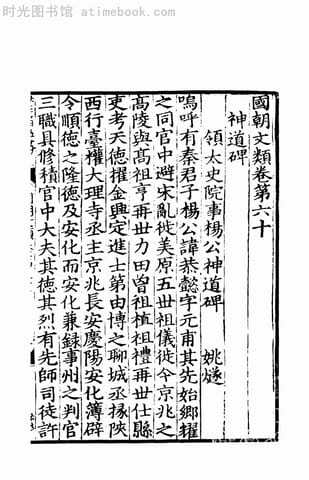 时光图书馆 - atimebook.com
國朝文類卷第六十
神道碑
領太史院事楊公神道碑 姚燧
嗚呼有秦君子楊公諱恭懿字元甫其先始鄉耀
之同官中避宋亂徙美原五世祖儀徙今京兆之
高陵與高祖亨再世力田曾祖植祖禮再世仕縣
吏考天德擢金興定進士第由博之聊城丞掾陝
西行臺權大理寺丞主京兆長安慶陽安化簿辟
令順德之隆德及安化而安化兼錄事州之判官
三職具修積官中大夫其德其烈有先師司徒許